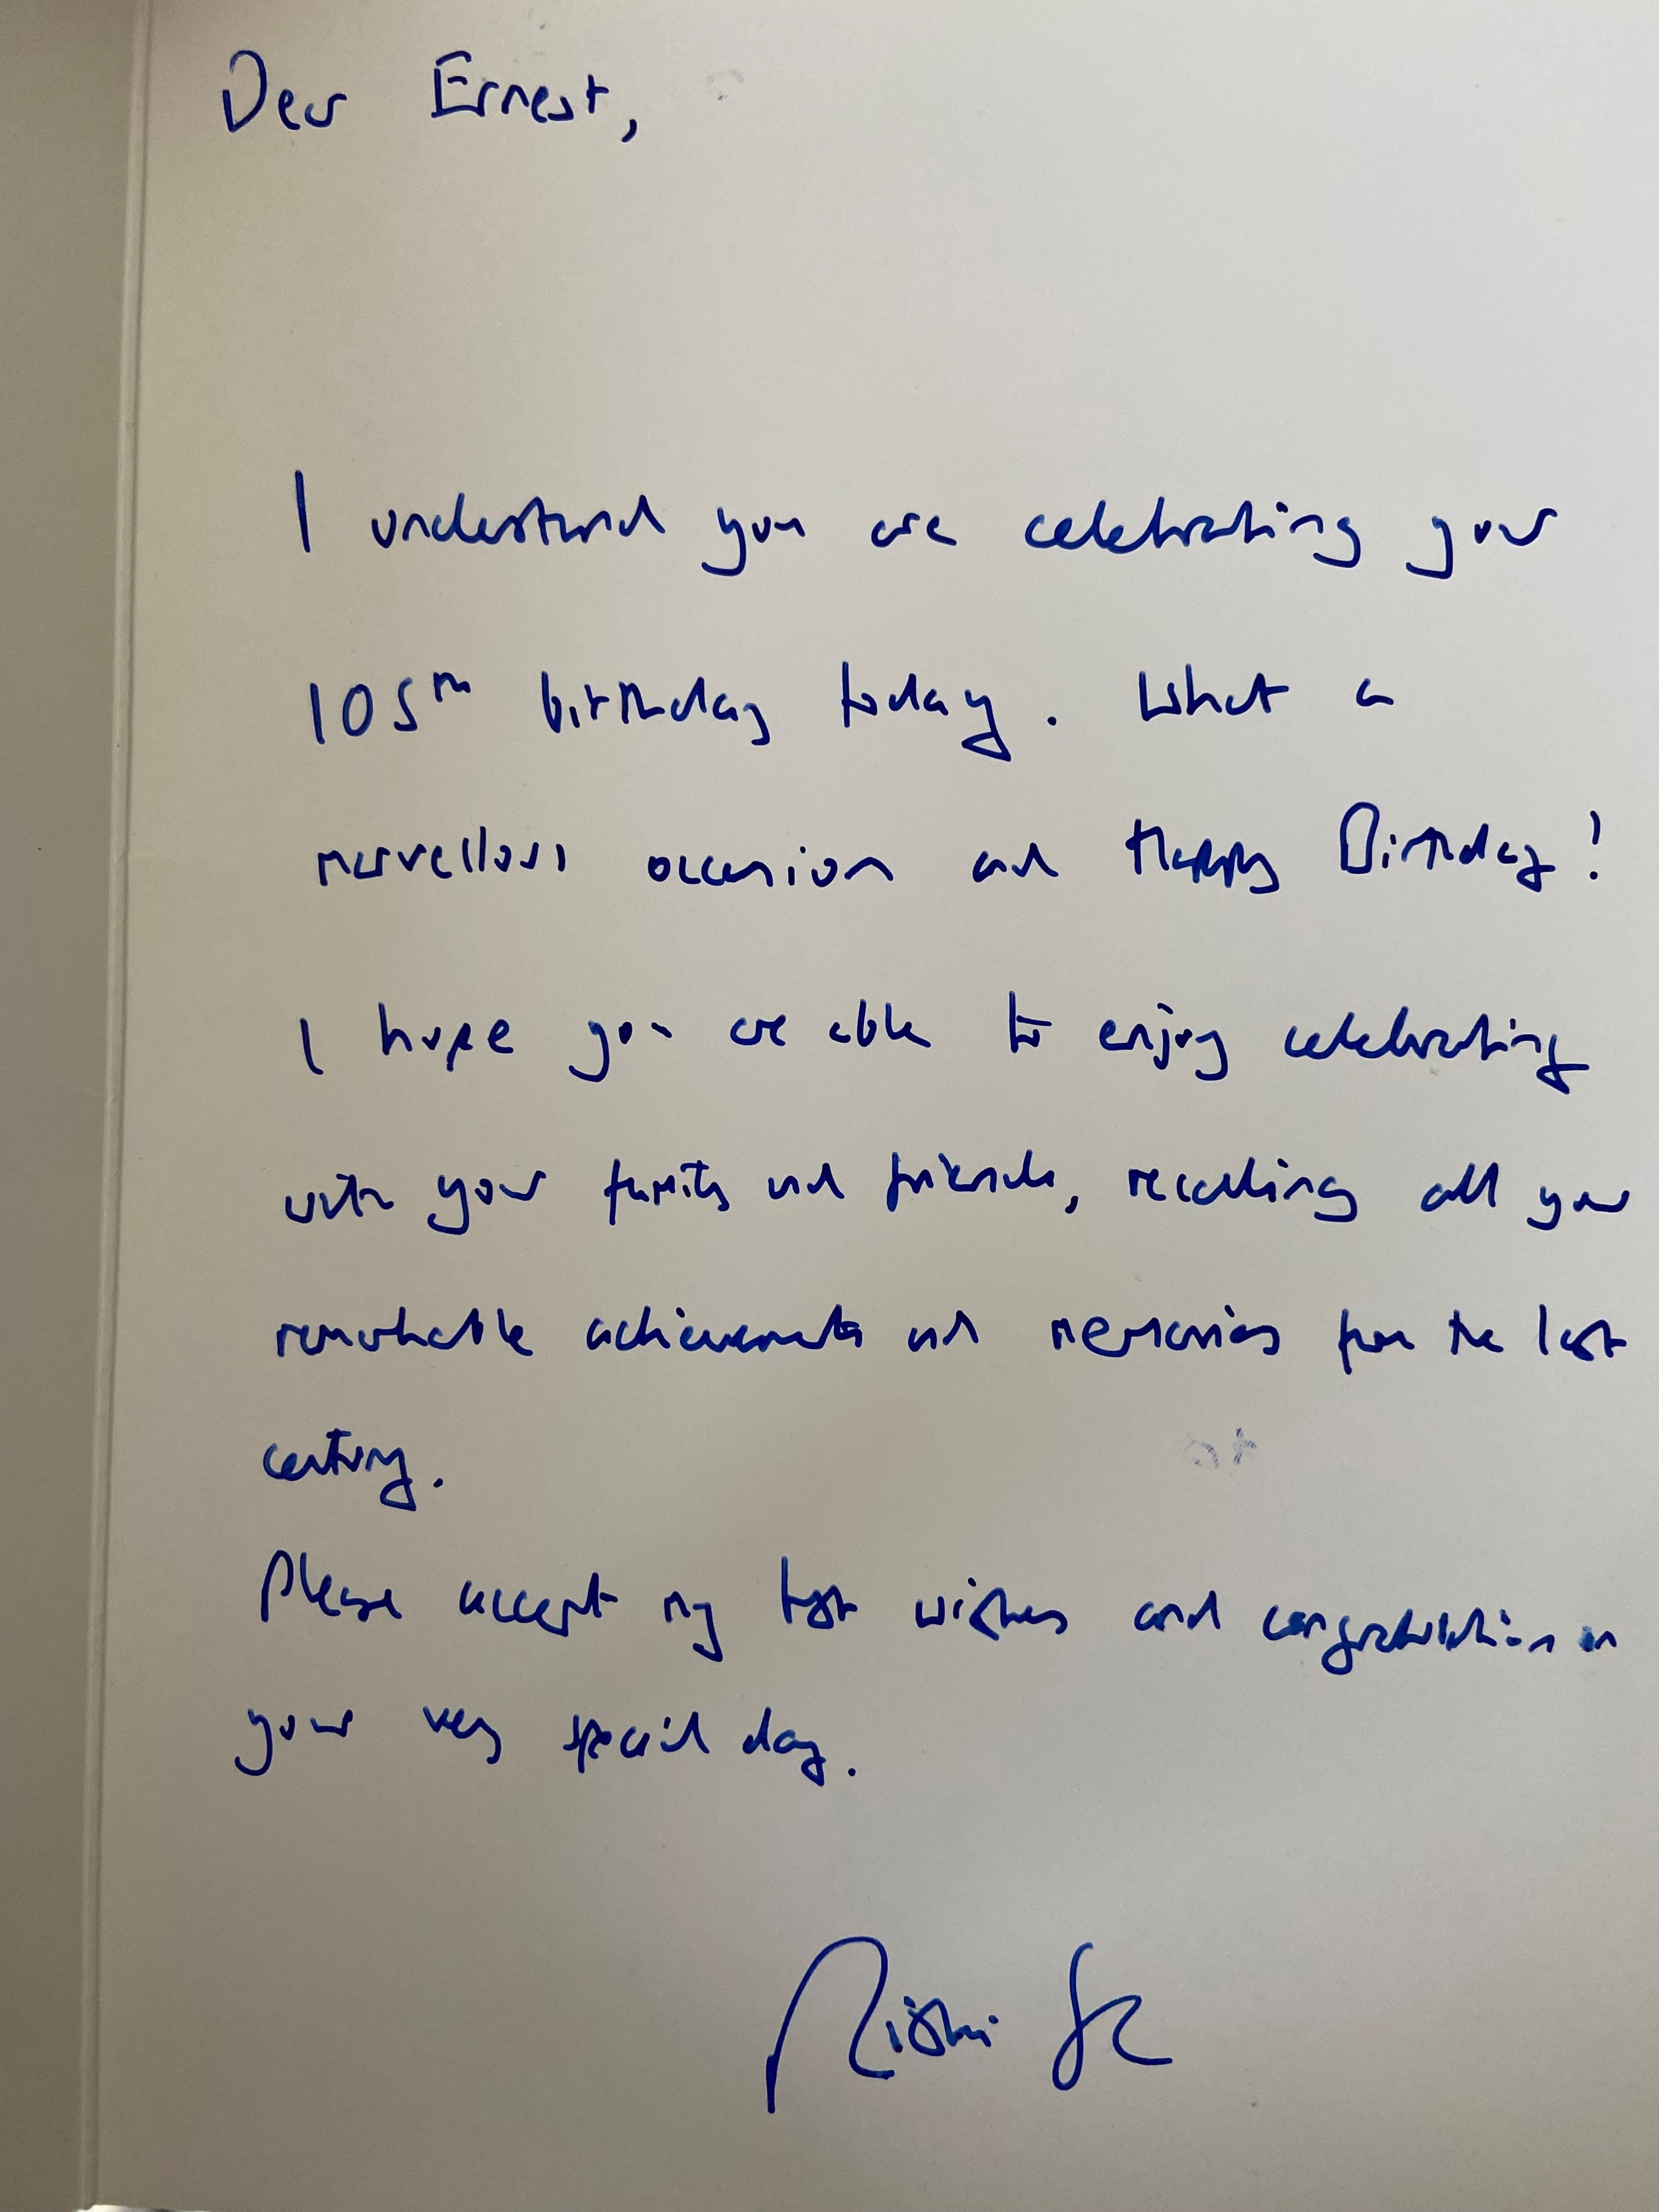 Dear Ernest,
I understand you are celebrating your
105th birthday today. What a
marvellous occasion and Happy Birthday!
I hope you are able to enjoy celebrating
with your family and friends, recalling all your
remarkable achievements and memories from the last
century.
Please accept my best wishes and congratulation on
your very special day.
Rishi